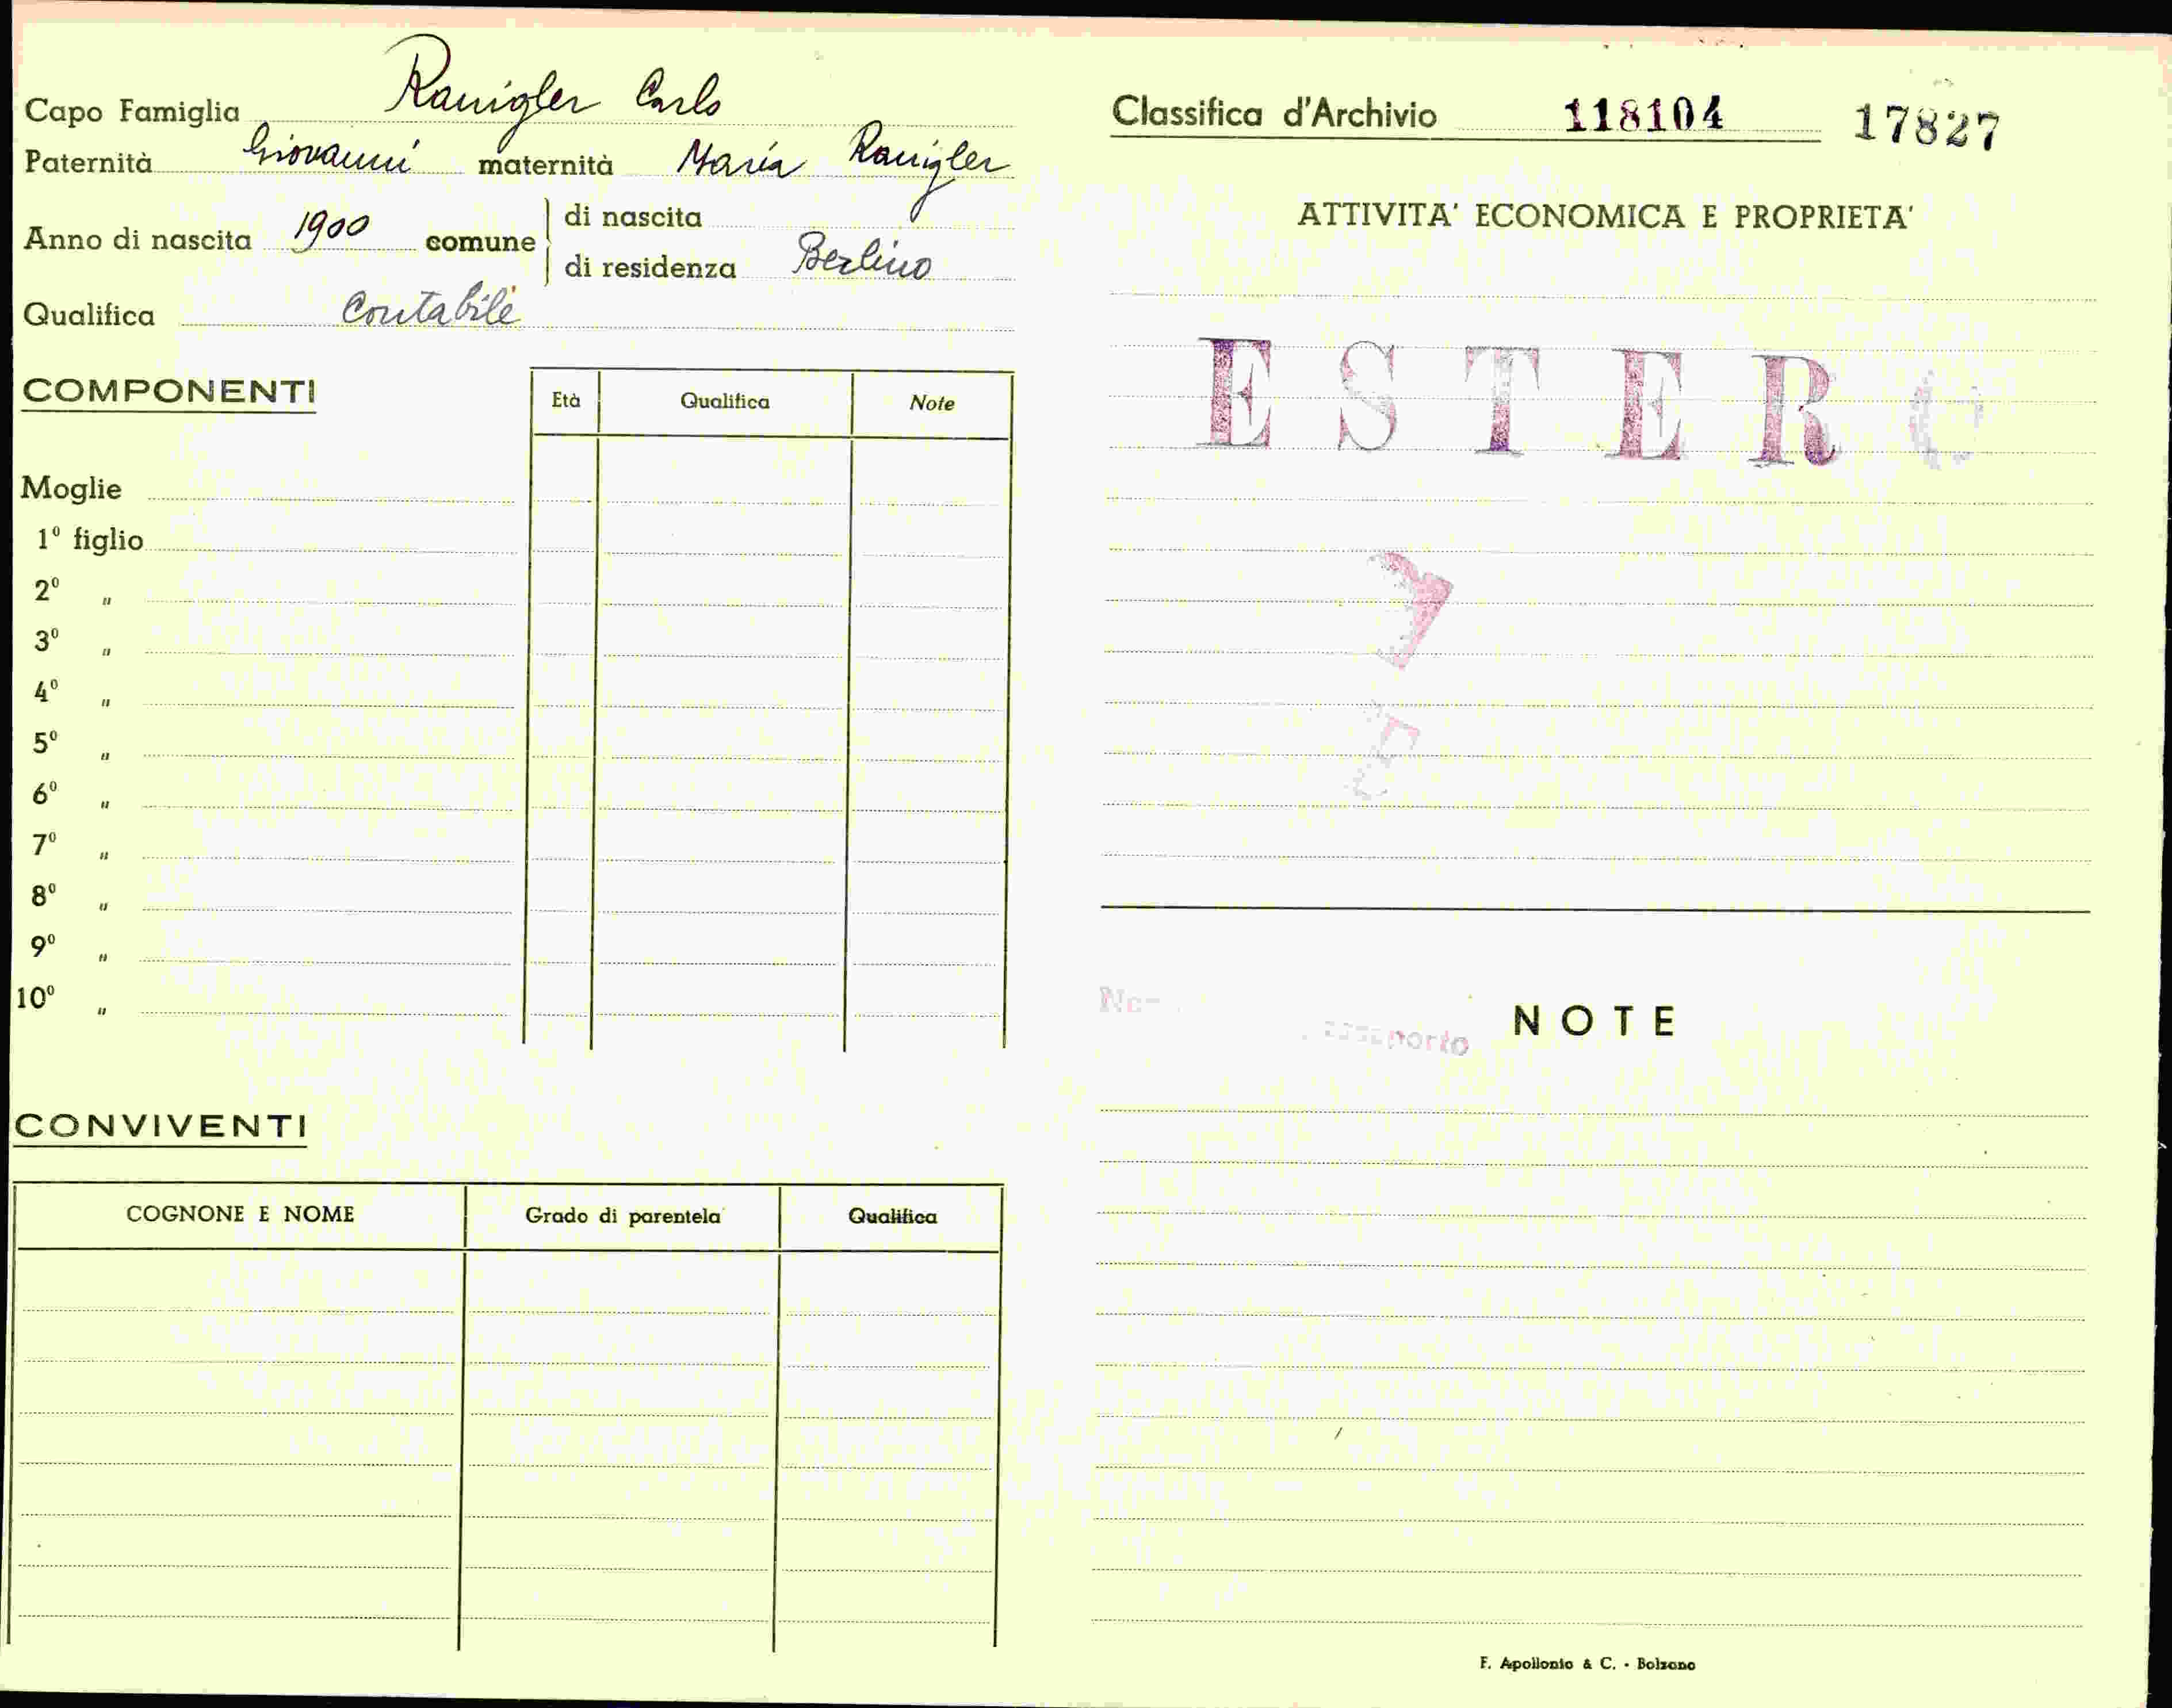 Capo Famiglia Ranigler Carlo
Paternità Giovanni maternità Maria Ranigler
Anno di nascita 1900 comune di nascita
di residenza Berlino
Qualifica Contabile
COMPONENTI
Età Qualifica Note
Moglie
1º figlio
2º "
3º "
4º "
5º "
6º "
7º "
8º "
9º "
10º "
CONVIVENTI
COGNONE E NOME Grado di parentela Qualifica
Classifica d'Archivio 118104 17827
ATTIVITA' ECONOMICA E PROPRIETA'
ESTERO
NOTE
F. Apollonio & C. - Bolzano